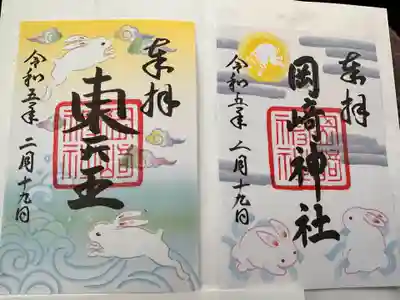 奉拝
岡崎神社
令和五年
月十九日
奉拝
東天王
令和五年二月十九日